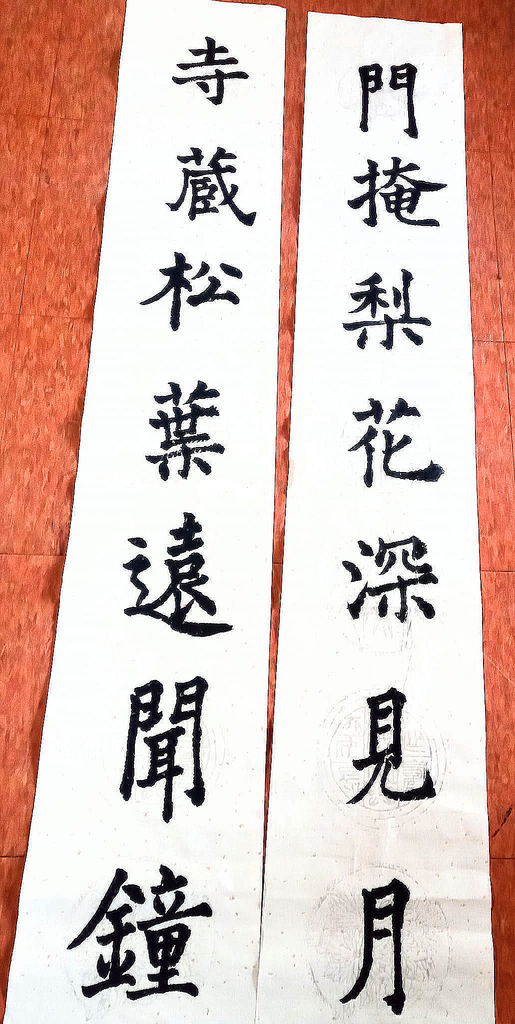 門掩梨花深見月
寺蔵松葉遠聞鐘